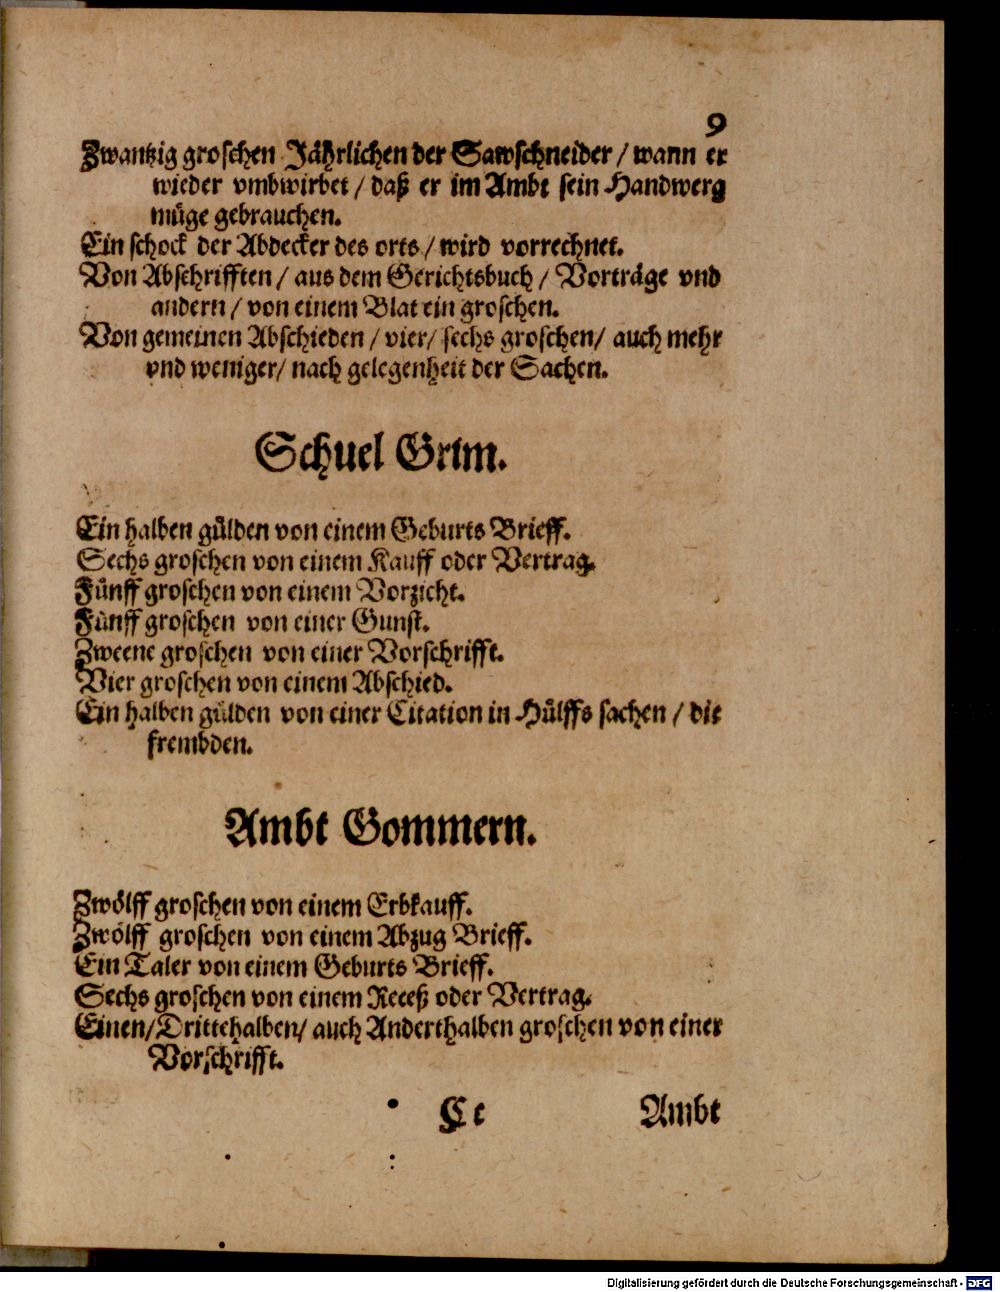 9
Zwantzig groschen Jährlichen der Sawschneider / wann er
wieder vmbwirbet / daß er im Ambt sein Handwerg
müge gebrauchen.
Ein schock der Abdecker des orts / wird vorrechnet.
Von Abschrifften / aus dem Gerichtsbuch / Vorträge vnd
andern / von einem Blat ein groschen.
Von gemeinen Abschieden / vier / sechs groschen / auch mehr
vnd weniger / nach gelegenheit der Sachen.
Schuel Grim.
Ein halben gülden von einem Geburts Brieff.
Sechs groschen von einem Kauff oder Vertrag.
Fünff groschen von einem Vorzicht.
Fünff groschen von einer Gunst.
Zweene groschen von einer Vorschrifft.
Vier groschen von einem Abschied.
Ein halben gülden von einer Citation in Hülffs sachen / die
frembden.
Ambt Gommern.
Zwölff groschen von einem Erbkauff.
Zwölff groschen von einem Abzug Brieff.
Ein Taler von einem Geburts Brieff.
Sechs groschen von einem Receß oder Vertrag.
Einen / Drittehalben / auch Anderthalben groschen von einer
Vorschrifft.
C c Ambt
Digitalisierung gefördert durch die Deutsche Forschungsgemeinschaft - DFG